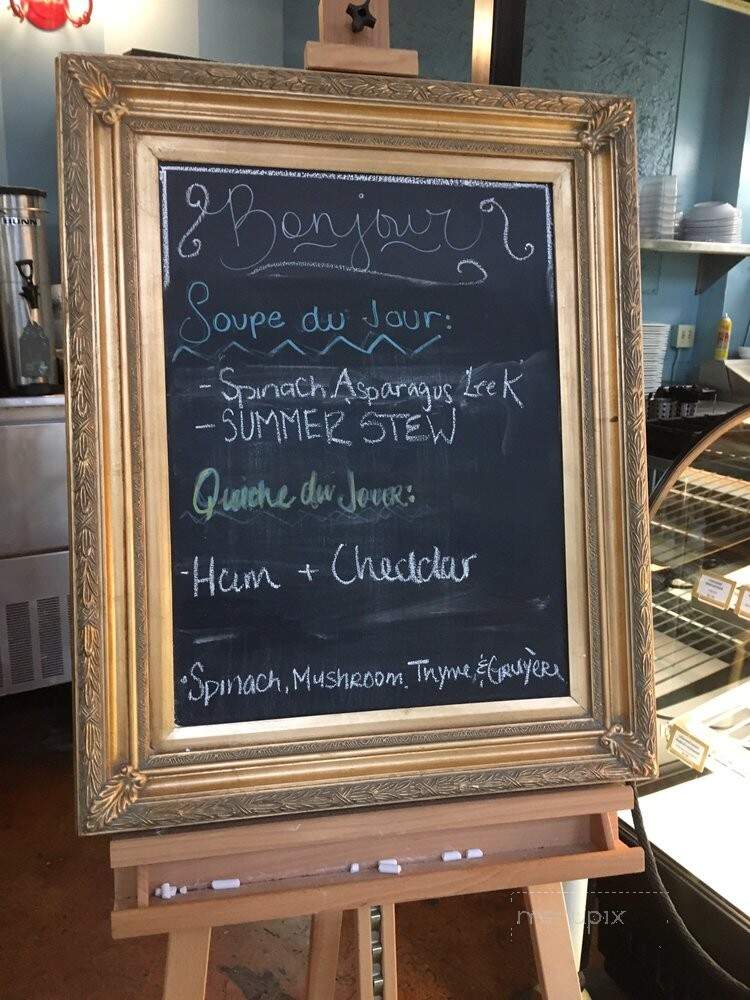 BUNN
Bonjour
Soupe du Jour:
- Spinach Asparagus Leek
- SUMMER STEW
Quiche du Jour:
- Ham + Cheddar
• Spinach, Mushroom, Thyme, & Gruyère
menupix